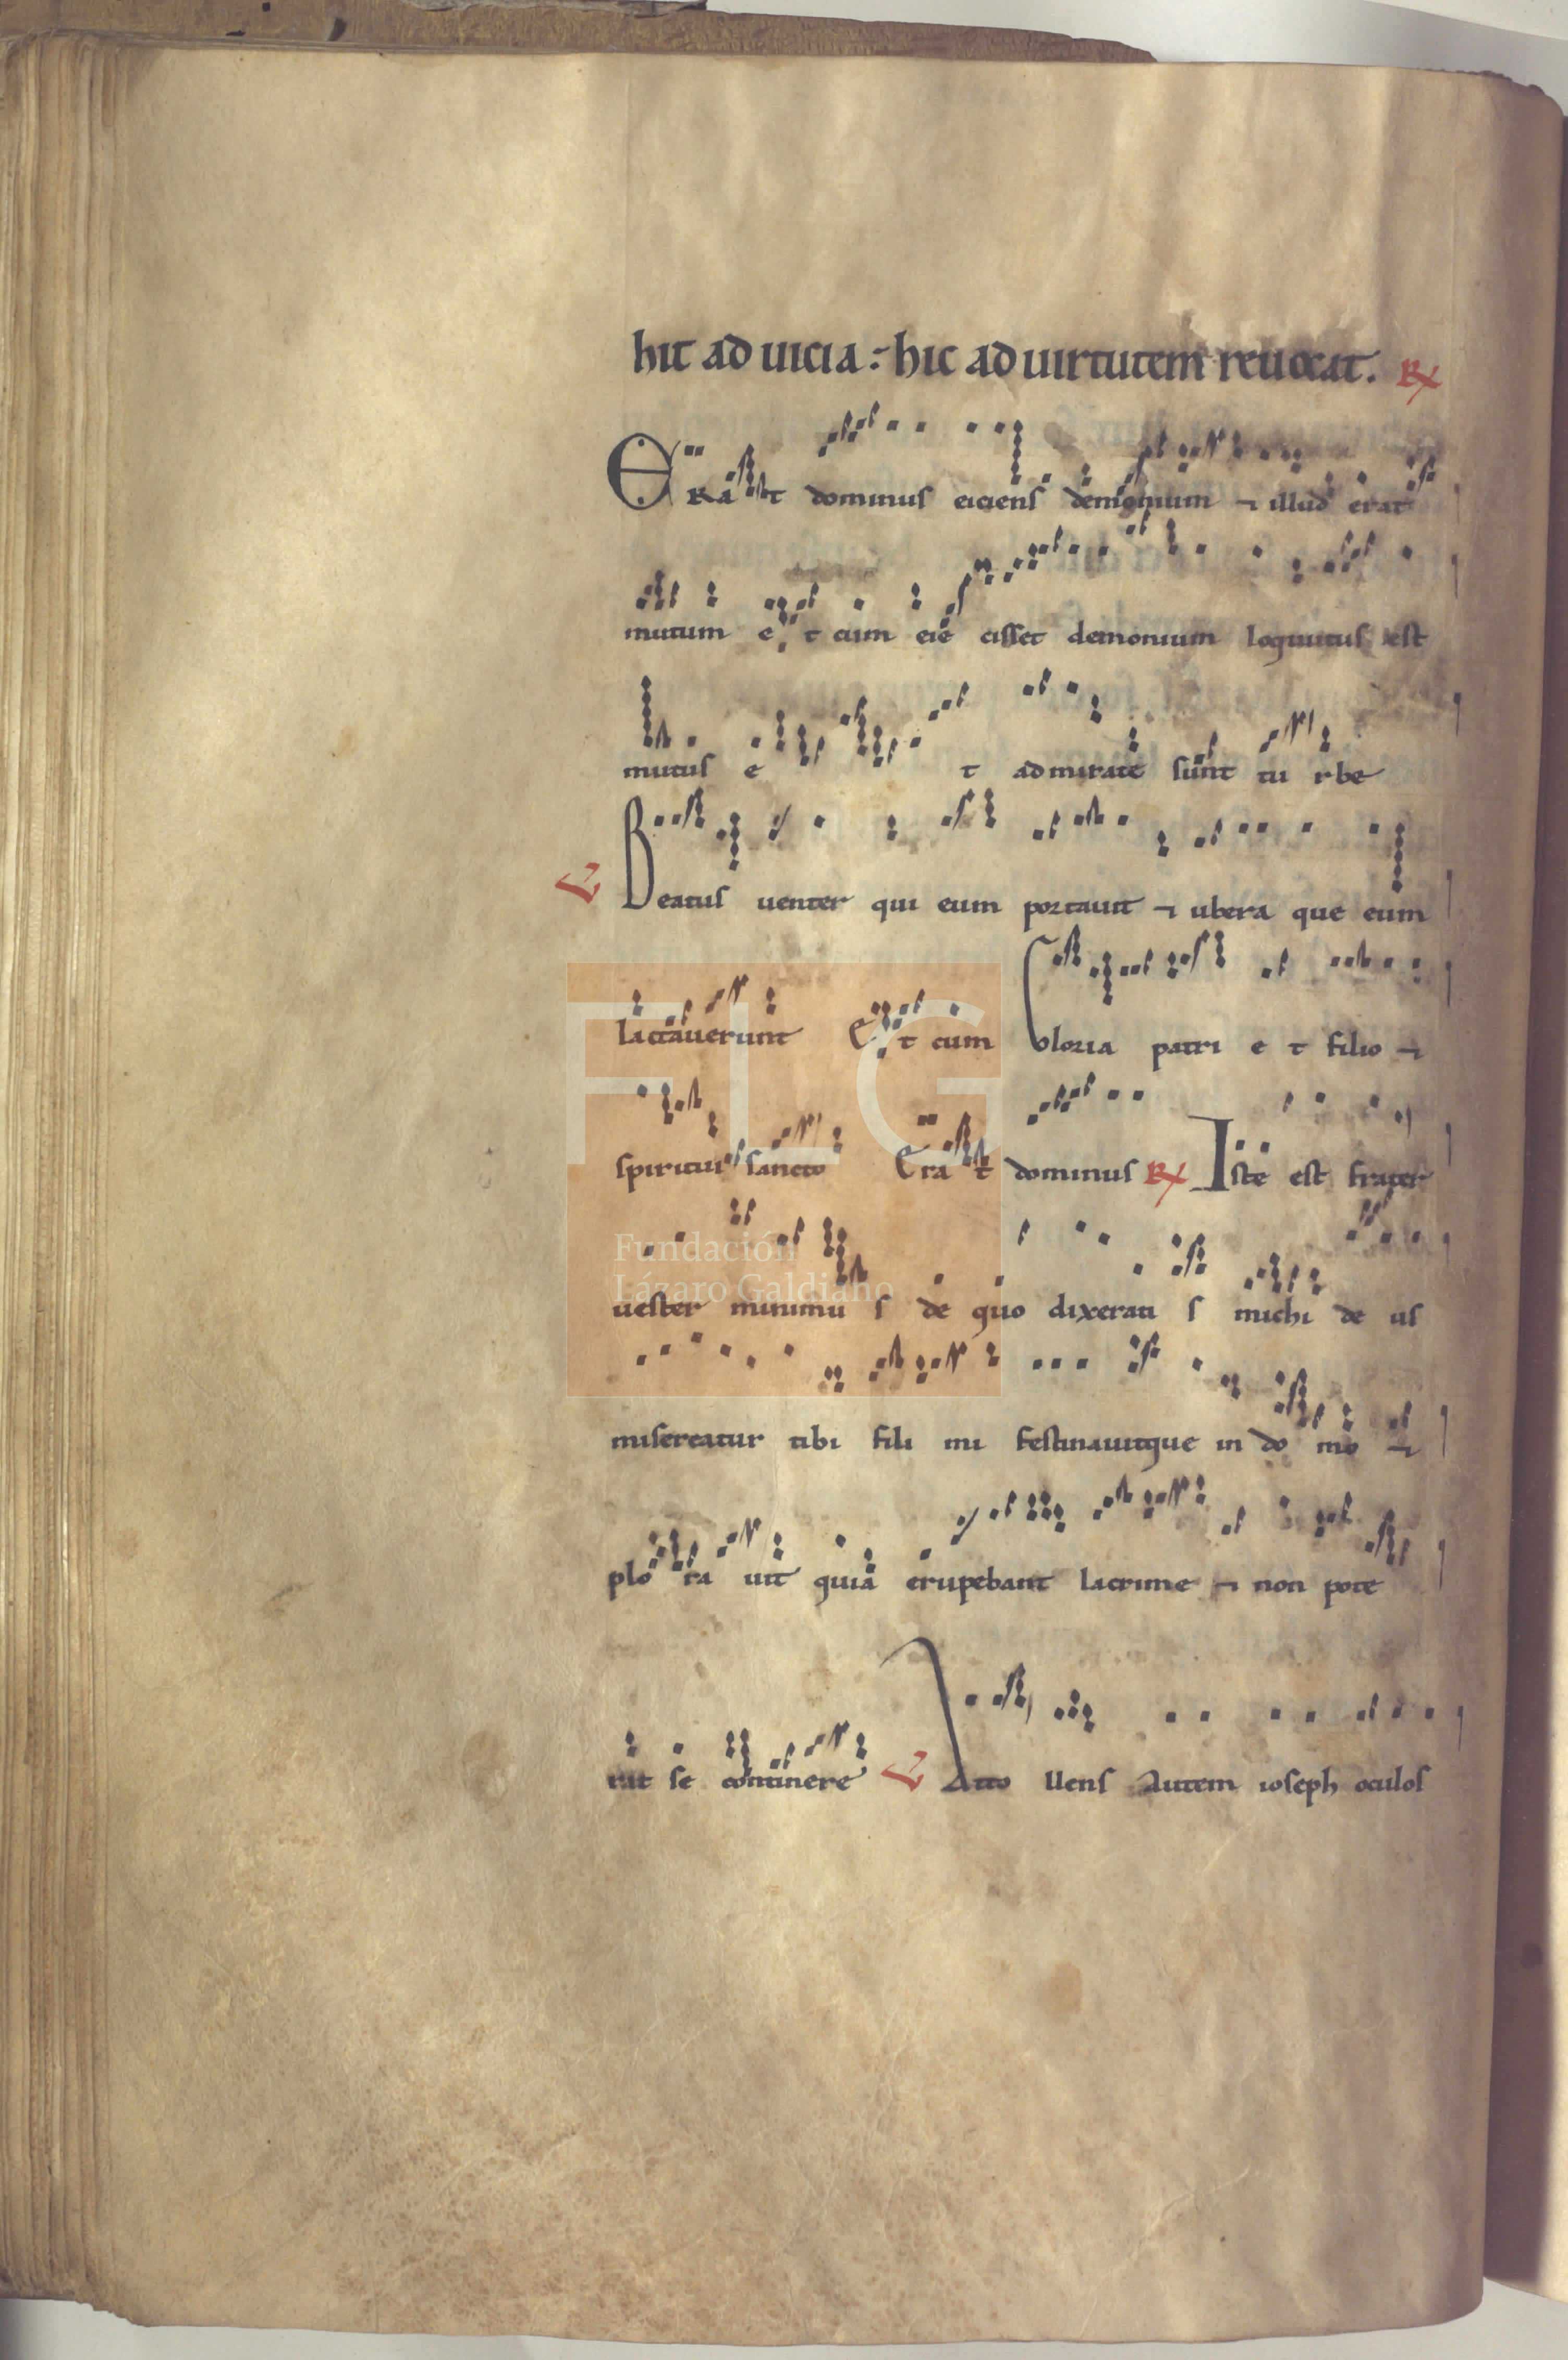 hit ad uicia : hic ad uirtutem reuocat. R
ERA t dominus eiciens demonium ⁊ illud erat
mutum e t cum eie cisset demonium loquutus est
mutus e t admirate sunt tu rbe
V Beatus uenter qui eum portauit ⁊ ubera que eum
lactauerunt Et cum Gloria patri e t filio ⁊
spiritui sancto Era t dominus R Iste est frater
uester minimu s de quo dixerati s michi de us
misereatur tibi fili mi festinauitque in do mo ⁊
plo ra uit quia erupebant lacrime ⁊ non pote
rat se continere V Atto llens autem ioseph oculos
FLG
Fundación
Lázaro Galdiano